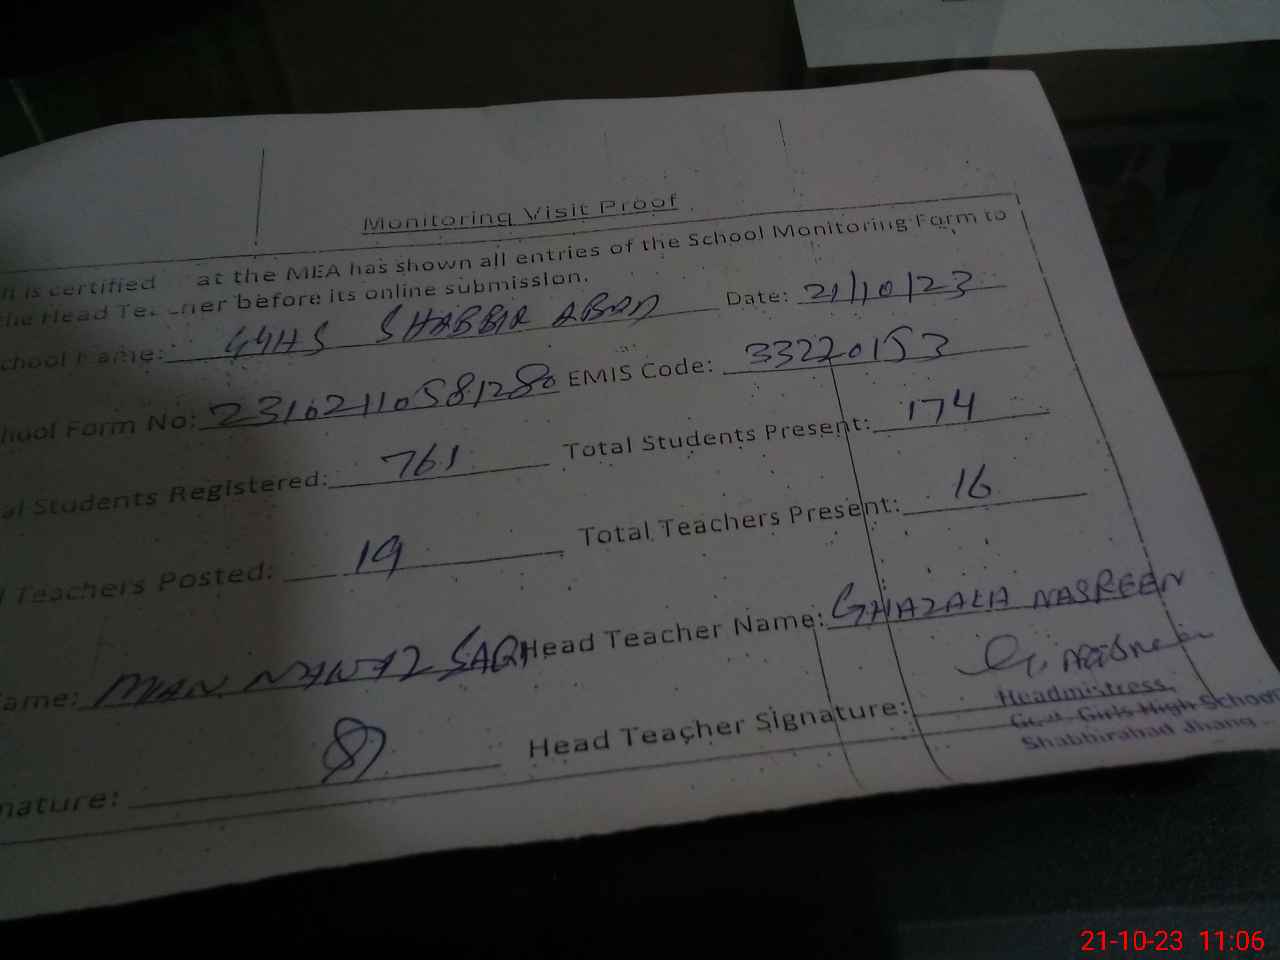 Monitoring Visit Proof
is certified at the MEA has shown all entries of the School Monitoring Form to
the Head before its online submission.
chool Name: GGHS SHABBIR ABAD Date: 21/10/23
hool Form No: 23102110581280 EMIS Code: 33220153
al Students Registered: 761 Total Students Present: 174
l Teachers Posted: 19 Total Teachers Present: 16
ame: MIAN NAWAZ SAQI Head Teacher Name: GHAZALA NASREEN
nature: Head Teacher Signature:
Headmistress
Govt. Girls High School
Shabbirabad Jhang
21-10-23 11:06